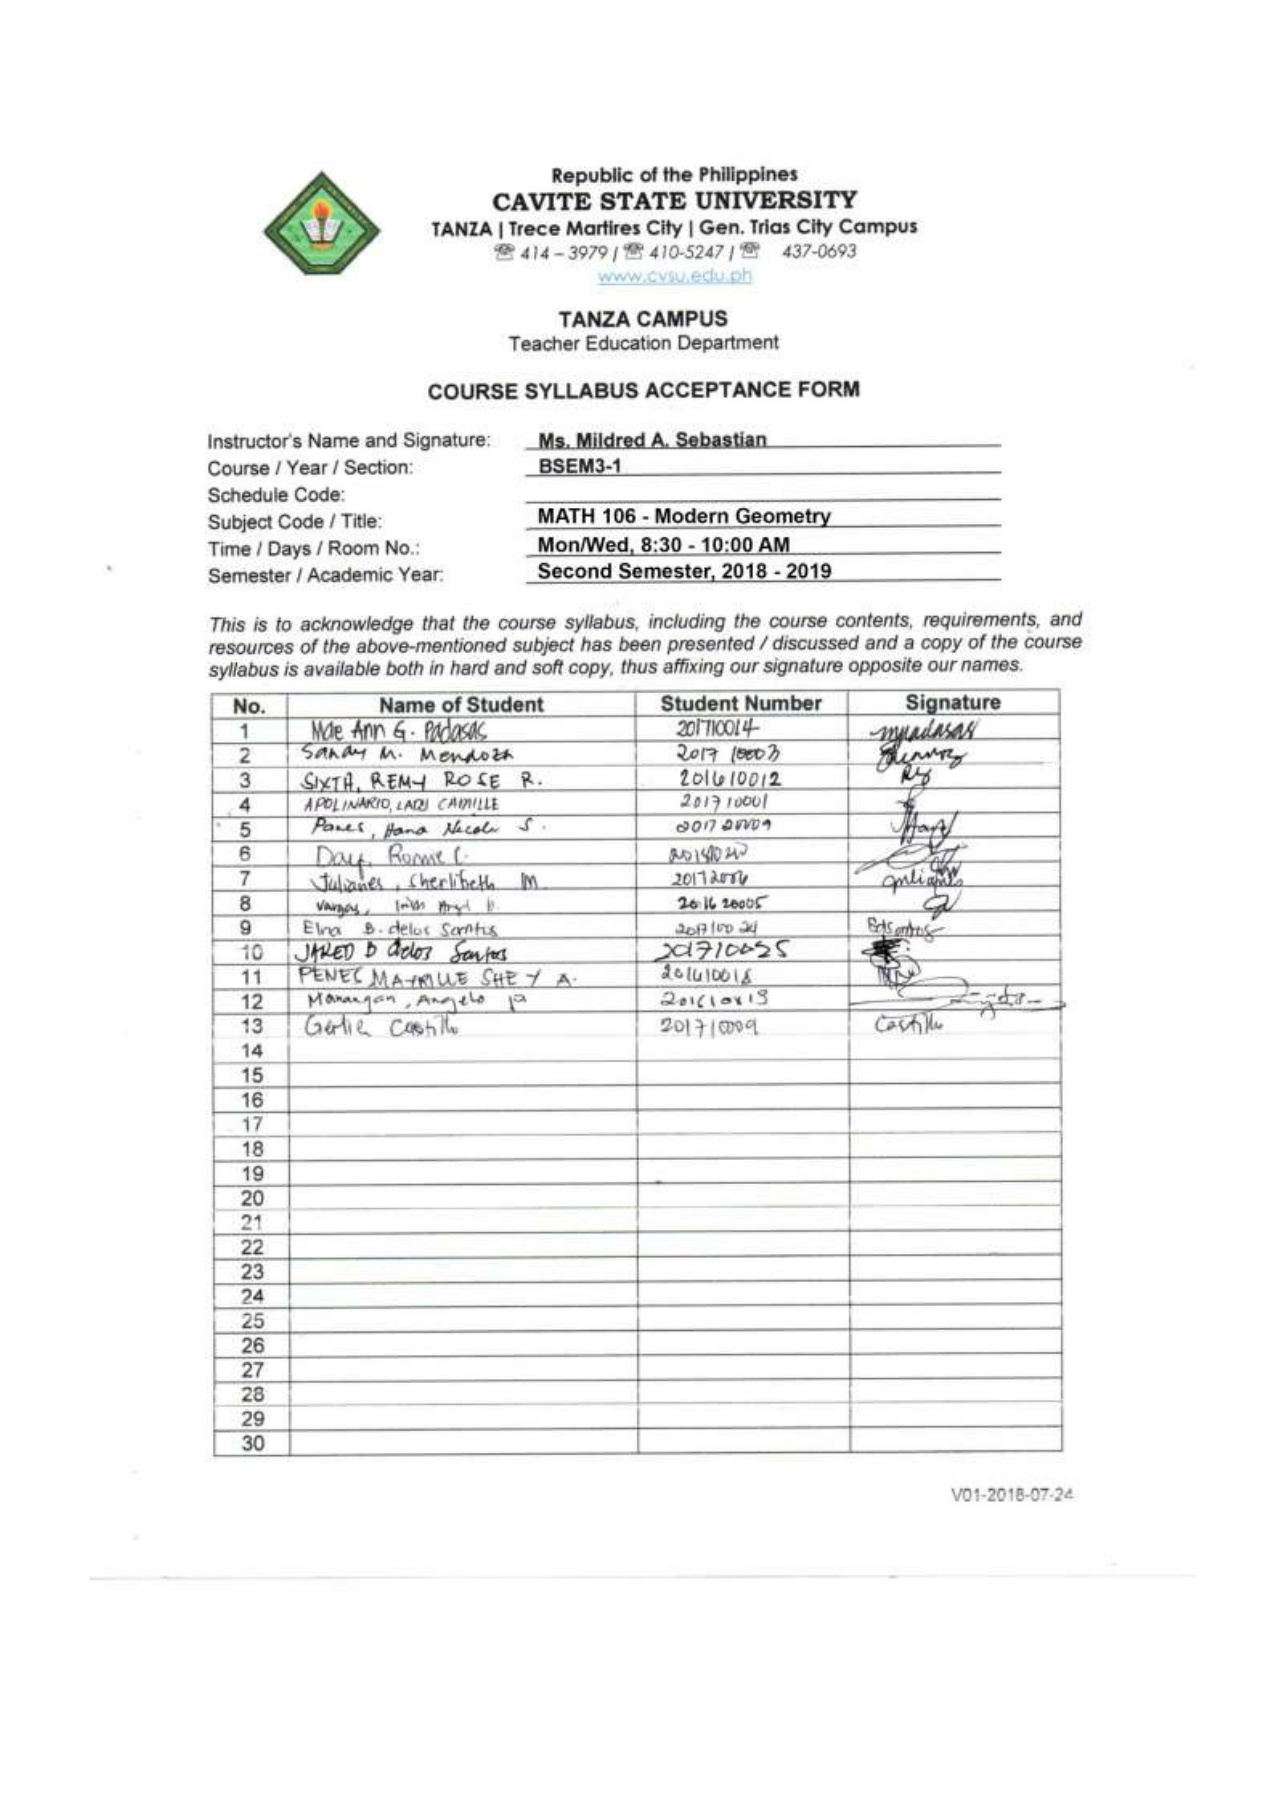 Republic of the Philippines
CAVITE STATE UNIVERSITY
TANZA | Trece Martires City | Gen. Trias City Campus
☏ 414 – 3979 / ☏ 410-5247 / ☏ 437-0693
www.cvsu.edu.ph
TANZA CAMPUS
Teacher Education Department
COURSE SYLLABUS ACCEPTANCE FORM
Instructor's Name and Signature: Ms. Mildred A. Sebastian
Course / Year / Section: BSEM3-1
Schedule Code:
Subject Code / Title: MATH 106 - Modern Geometry
Time / Days / Room No.: Mon/Wed, 8:30 - 10:00 AM
Semester / Academic Year: Second Semester, 2018 - 2019
This is to acknowledge that the course syllabus, including the course contents, requirements, and
resources of the above-mentioned subject has been presented / discussed and a copy of the course
syllabus is available both in hard and soft copy, thus affixing our signature opposite our names.
No. Name of Student Student Number Signature
1 Mae Ann G. Padasas 201710014
2 Sanday M. Mendoza 2017 10003
3 SIXTH, REMY ROSE R. 201610012
4 APOLINARIO, LADY CAMILLE 201710001
5 Panes, Hana Nicole S.
6 Day, Ronnie C.
7 Julianes, Sherlibeth M
8 Vargas, 2016 20005
9 Elna B. delos Santos 201710024
10 JARED B delos Santos 201710025
11 PENEC MAYRILLE SHEY A. 201610018
12 Manangan, Angelo
13 Gerlie Castillo 201710009 Castillo
14
15
16
17
18
19
20
21
22
23
24
25
26
27
28
29
30
V01-2018-07-24